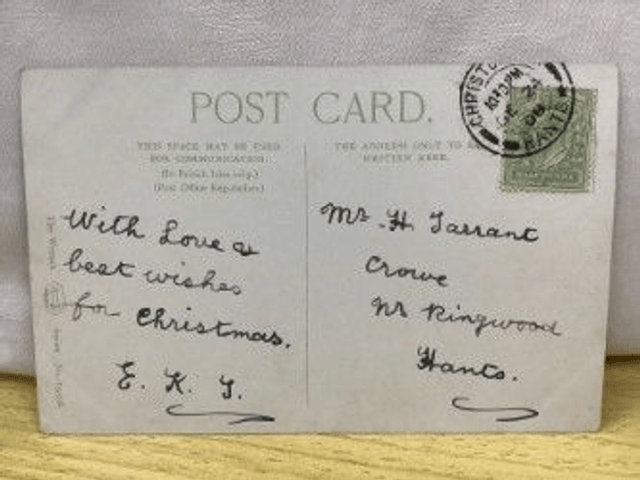 POST CARD.
THIS SPACE MAY BE USED
FOR COMMUNICATION.
(In British Isles only.)
(Post Office Regulation.)
THE ADDRESS ONLY TO BE
WRITTEN HERE.
10.30 PM
DE 24
08
HANTS
With Love &
best wishes
for Christmas.
E. K. T.
Mr. H. Tarrant
Crowe
Nr Ringwood
Hants.